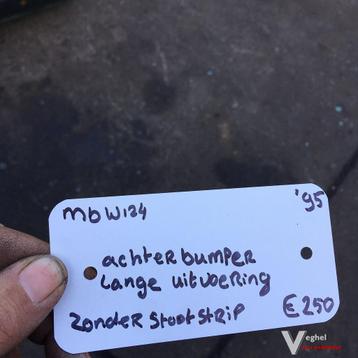 MbW124 '95
achterbumper
Lange uitvoering
zonder stootstrip €250
Veghel